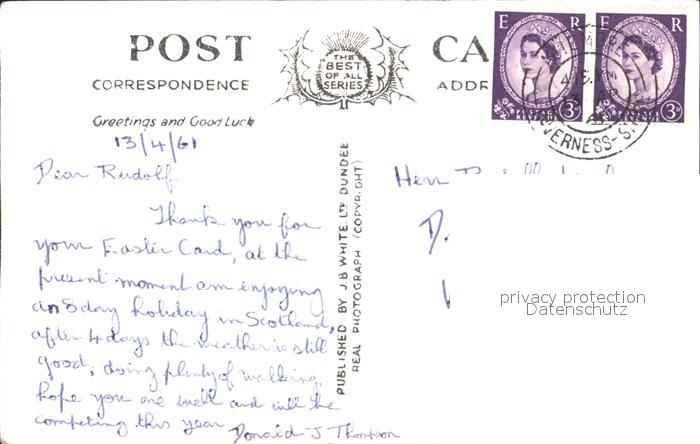 POST CA
CORRESPONDENCE ADDR
THE
BEST
OF ALL
SERIES
E R E R
3D 3D
INVERNESS-SHIRE
Greetings and Good Luck
13/4/61
Dear Rudolf
Thank you for
your Easter Card, at the
present moment am enjoying
an 8 day holiday in Scotland,
after 4 days the weather is still
good, doing plenty of walking,
hope you are well and will be
competing this year
Donald J Thompson
PUBLISHED BY J.B WHITE. LTD DUNDEE
REAL PHOTOGRAPH (COPYRIGHT)
Herr
D.
privacy protection
Datenschutz